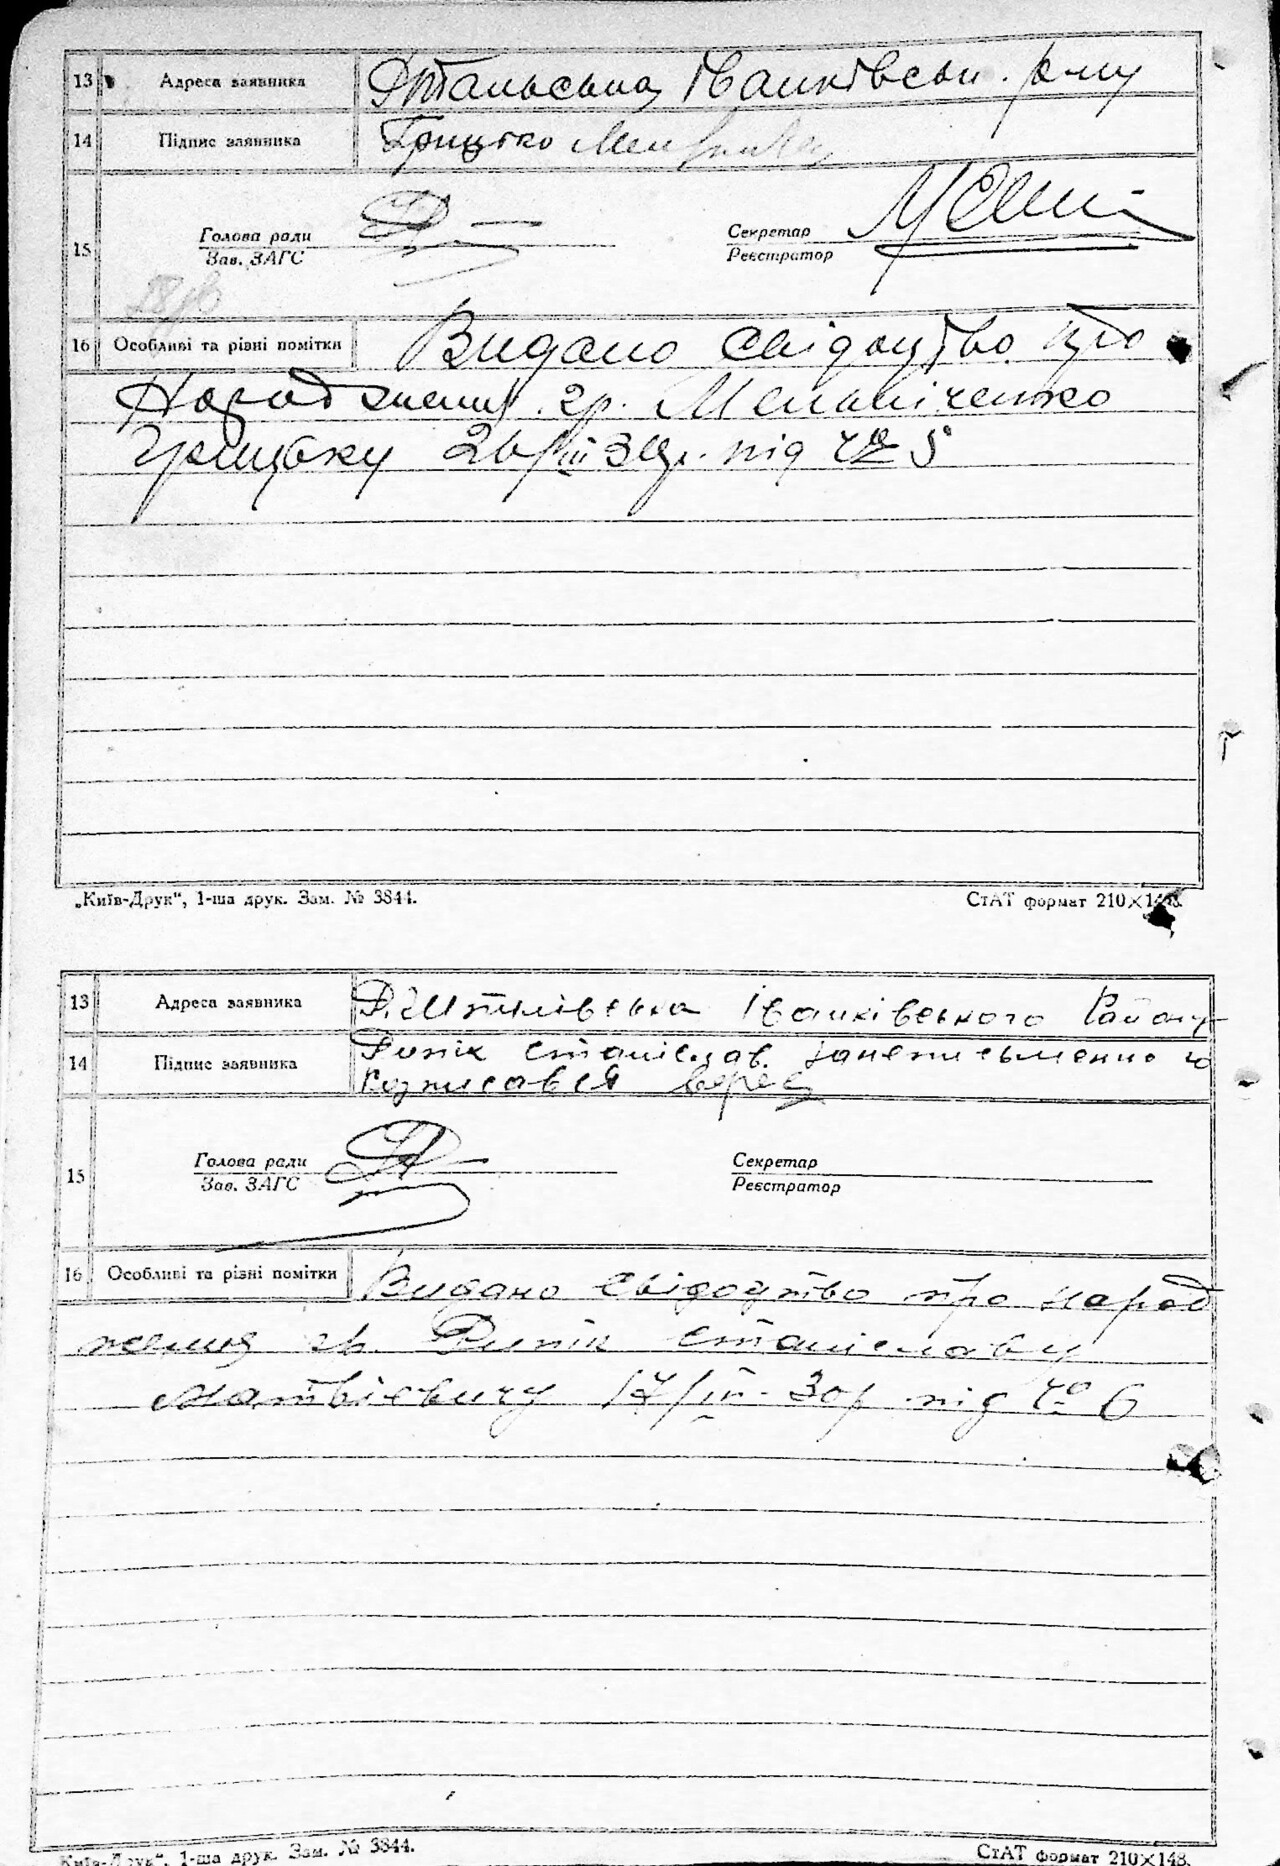 13 Адреса заявника Іванківськ. р-ну
14 Підпис заявника Грицько
15 Голова ради Секретар
Зав. ЗАГС Реєстратор
16 Особливі та різні помітки Видано свідоцтво про
Народження гр. Мельніченко
Грицьку 26/III 30р. під № 5
„Київ-Друк“, 1-ша друк. Зам. № 3844. СтАТ формат 210×148.
13 Адреса заявника Іванківського Району
14 Підпис заявника Рипік Станіслав. за неписьменного
Росписався
15 Голова ради Секретар
Зав. ЗАГС Реєстратор
16 Особливі та різні помітки Видано свідоцтво про народ
ження гр. Рипік Станіславу
Матвієвичу 17/III-30р під № 6
„Київ-Друк“, 1-ша друк. Зам. № 3844. СтАТ формат 210×148.